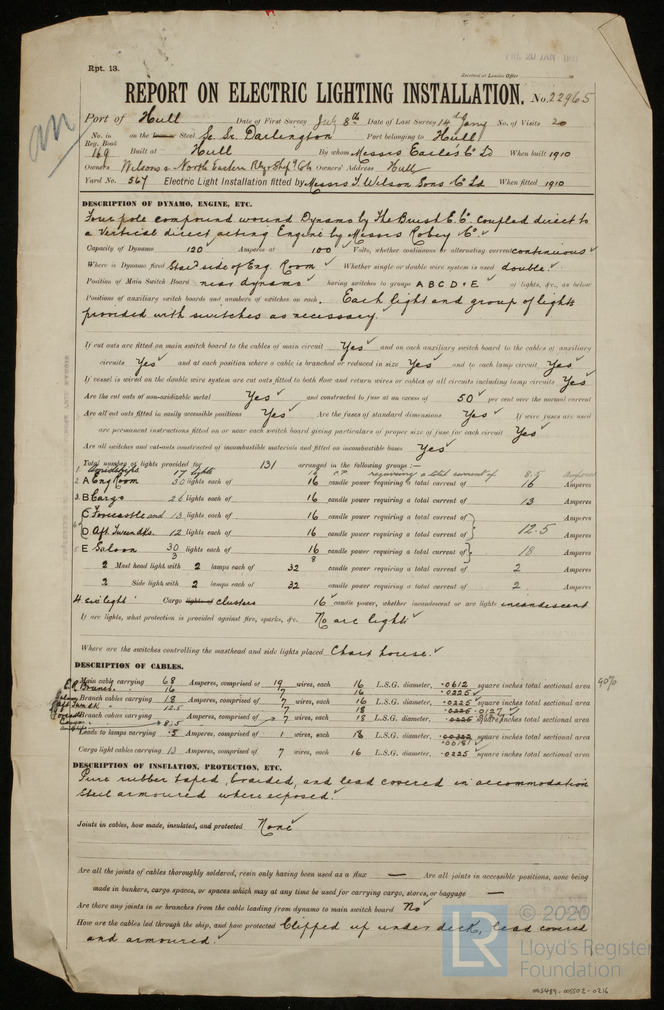 Rpt. 13.
Received at London Office
REPORT ON ELECTRIC LIGHTING INSTALLATION. No. 22965
Port of Hull Date of First Survey July 8th Date of Last Survey 14th Jany No. of Visits 20
No. in Reg. Book 169 on the Steel Sc. Sr. Darlington Port belonging to Hull
Built at Hull By whom Messrs Earle's Co Ld When built 1910
Owners Wilsons & North Eastern Rly Ship'g Co Ld Owners' Address Hull
Yard No. 567 Electric Light Installation fitted by Messrs T. Wilson Sons & Co Ld When fitted 1910
DESCRIPTION OF DYNAMO, ENGINE, ETC.
Four pole compound wound Dynamo by The Brush E. Co. coupled direct to
a Vertical direct acting Engine by Messrs Robey & Co.
Capacity of Dynamo 120 Amperes at 100 Volts, whether continuous or alternating current continuous
Where is Dynamo fixed Starbd side of Eng. Room Whether single or double wire system is used double.
Position of Main Switch Board near dynamo having switches to groups A B C D & E of lights, &c., as below
Positions of auxiliary switch boards and numbers of switches on each. Each light and group of lights
provided with switches as necessary.
If cut outs are fitted on main switch board to the cables of main circuit Yes and on each auxiliary switch board to the cables of auxiliary
circuits Yes and at each position where a cable is branched or reduced in size Yes and to each lamp circuit Yes
If vessel is wired on the double wire system are cut outs fitted to both flow and return wires or cables of all circuits including lamp circuits Yes
Are the cut outs of non-oxidizable metal Yes and constructed to fuse at an excess of 50 per cent over the normal current
Are all cut outs fitted in easily accessible positions Yes Are the fuses of standard dimensions Yes If wire fuses are used
are permanent instructions fitted on or near each switch board giving particulars of proper size of fuse for each circuit Yes
Are all switches and cut-outs constructed of incombustible materials and fitted on incombustible bases Yes
Total number of lights provided for 131 arranged in the following groups:—
1. 17 lights 16 c.p. requiring a total current of 8.5 Amperes
2. A Eng Room 30 lights each of 16 candle power requiring a total current of 16 Amperes
3. B Cargo 26 lights each of 16 candle power requiring a total current of 13 Amperes
C Forecastle and 13 lights each of 16 candle power requiring a total current of Amperes
D Aft. Tween dks. 12 lights each of 16 candle power requiring a total current of 12.5 Amperes
5. E Saloon 30 3 lights each of 16 8 candle power requiring a total current of 18 Amperes
2 Mast head light with 2 lamps each of 32 candle power requiring a total current of 2 Amperes
2 Side light with 2 lamps each of 32 candle power requiring a total current of 2 Amperes
4 six light Cargo lights of clusters 16 candle power, whether incandescent or arc lights incandescent
If arc lights, what protection is provided against fire, sparks, &c. No arc lights
Where are the switches controlling the masthead and side lights placed Chart house.
DESCRIPTION OF CABLES.
Main cable carrying 68 Amperes, comprised of 19 wires, each 16 L.S.G. diameter, .0612 square inches total sectional area 90%
E.R. Branch 16 7 16 .0225
Branch cables carrying 18 Amperes, comprised of 7 wires, each 16 L.S.G. diameter, .0225 square inches total sectional area
12.5 7 18 .0225 .0127
Branch cables carrying 8.5 Amperes, comprised of 7 wires, each 18 L.S.G. diameter, .0225 square inches total sectional area
Leads to lamps carrying .5 Amperes, comprised of 1 wires, each 18 L.S.G. diameter, .00322 square inches total sectional area
.00181
Cargo light cables carrying 13 Amperes, comprised of 7 wires, each 16 L.S.G. diameter, .0225 square inches total sectional area
DESCRIPTION OF INSULATION, PROTECTION, ETC.
Pure rubber taped, braided, and lead covered in accommodation
Steel armoured where exposed.
Joints in cables, how made, insulated, and protected None
Are all the joints of cables thoroughly soldered, resin only having been used as a flux — Are all joints in accessible positions, none being
made in bunkers, cargo spaces, or spaces which may at any time be used for carrying cargo, stores, or baggage —
Are there any joints in or branches from the cable leading from dynamo to main switch board No
How are the cables led through the ship, and how protected Clipped up under deck, lead covered
and armoured.
© 2020
LR Lloyd's Register
Foundation
003489-005502-0216